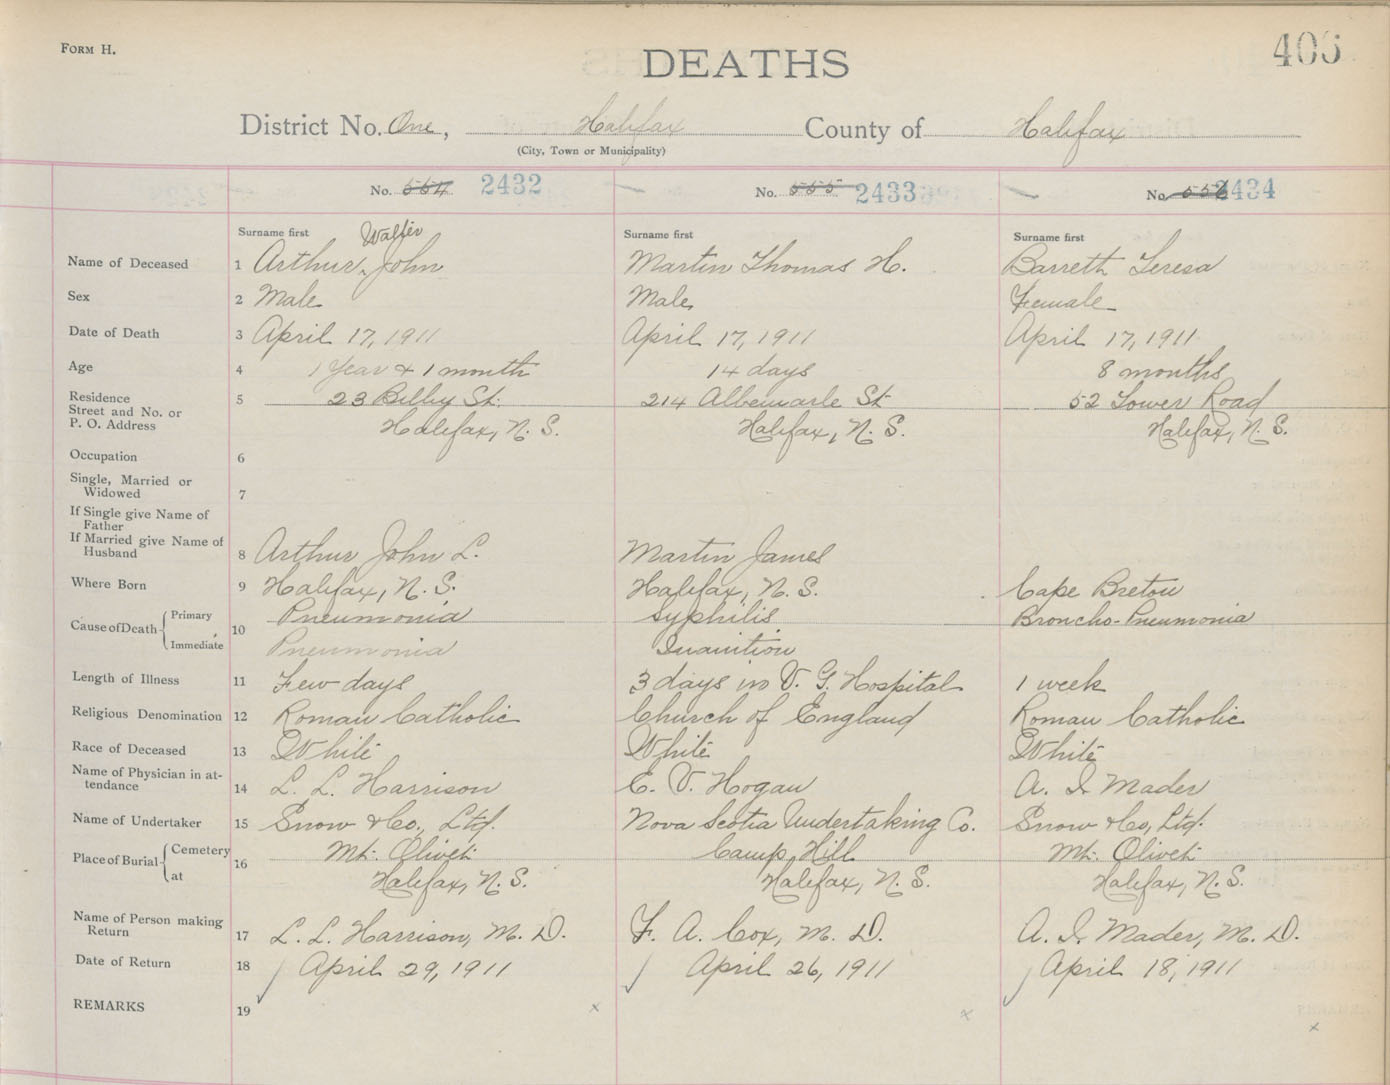 FORM H.
DEATHS
405
District No. One, Halifax County of Halifax
(City, Town or Municipality)
No. 554 2432 No. 555 2433 No. 556 2434
Surname first Walter Surname first Surname first
Name of Deceased 1 Arthur, John Martin Thomas H. Barrett Teresa
Sex 2 Male Male Female
Date of Death 3 April 17, 1911 April 17, 1911 April 17, 1911
Age 4 1 Year & 1 month 14 days 8 months
Residence 5 23 Bilby St. 214 Albemarle St 52 Lower Road
Street and No. or
P. O. Address Halifax, N. S. Halifax, N. S. Halifax, N. S.
Occupation 6
Single, Married or
Widowed 7
If Single give Name of
Father
If Married give Name of
Husband 8 Arthur John L. Martin James
Where Born 9 Halifax, N. S. Halifax, N. S. Cape Breton
Cause of Death Primary 10 Pneumonia Syphilis Broncho-Pneumonia
Immediate Pneumonia Inanition
Length of Illness 11 Few days 3 days in V. G. Hospital 1 week
Religious Denomination 12 Roman Catholic Church of England Roman Catholic
Race of Deceased 13 White White White
Name of Physician in at-
tendance 14 L. L. Harrison E. V. Hogan A. I. Mader
Name of Undertaker 15 Snow & Co., Ltd. Nova Scotia Undertaking Co. Snow & Co, Ltd.
Place of Burial Cemetery 16 Mt. Olivet Camp Hill Mt. Olivet
at Halifax, N. S. Halifax, N. S. Halifax, N. S.
Name of Person making
Return 17 L. L. Harrison, M. D. F. A. Cox, M. D. A. I. Mader, M. D.
Date of Return 18 April 29, 1911 April 26, 1911 April 18, 1911
REMARKS 19